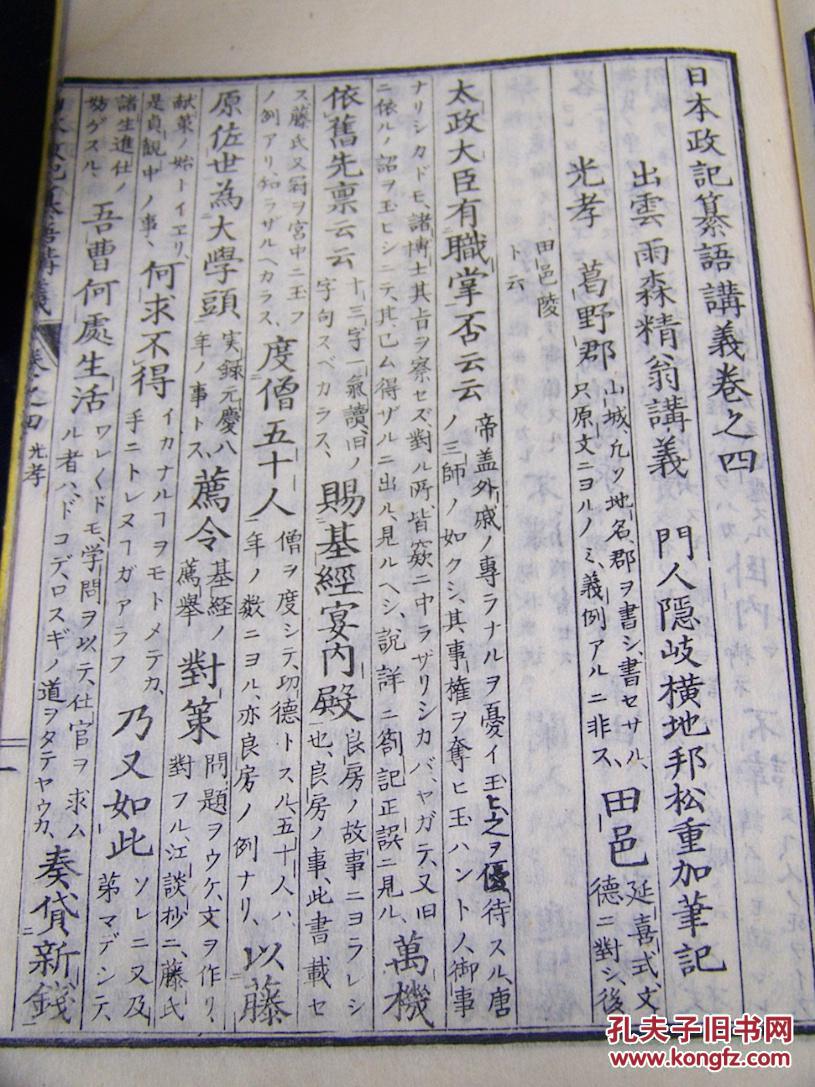 日本政記纂語講義巻之四
出雲 雨森精翁講義 門人隠岐横地邦松重加筆記
光孝 葛野郡 山城、凢ソ地名、郡ヲ書シ、書セサル、
只原文ニヨルノミ、義例アルニ非ス、 田邑 延喜式、文
德ニ對シ、後
田邑陵
ト云
太政大臣有職掌否云云 帝盖外戚ノ專ラナルヲ憂イ玉ヒ、之ヲ優待スル、唐
ノ三師ノ如クシ、其事權ヲ奪ヒ玉ハントノ御事
ナリシカドモ、諸博士其旨ヲ察セズ對ル所、皆窾ニ中ラザリシカバ、ヤガテ、又旧
ニ依ルノ詔ヲ玉ヒシニテ、其已ム得ザルニ出ル、見ルヘシ、説詳ニ劄記正誤ニ見ル、 萬機
依舊先禀云云 十三字一氣讀、旧ノ
字句スベカラス、 賜基經宴内殿 良房ノ故事ニヨラレシ
也、良房ノ事、此書載セ
ス、藤氏又冠ヲ宮中ニ玉フ
ノ例アリ、知ラザルヘカラス、 度僧五十人 僧ヲ度シテ、功德トスル、五十人ハ、
年ノ数ニヨル、亦良房ノ例ナリ、 以藤
原佐世為大學頭 実録元慶八
年ノ事トス、 薦令 基経ノ
薦舉 對策 問題ヲウケ、文ヲ作リ、
對フル、江談抄ニ、藤氏
献策ノ始トイヱリ、
是貞観中ノ事、 何求不得 イカナルヿヲモトメテカ、
手ニトレヌヿガアラフ 乃又如此 ソレニ又及
苐マデシテ、
諸生進仕ノ
妨ゲスル、 吾曹何處生活 ワレ〱ドモ、学問ヲ以テ、仕官ヲ求ム
ル者ハ、ドコデ、口スギノ道ヲタテヤウカ、 奏貸新錢
本政記纂語講義 巻之四 光孝
孔夫子旧书网
KONGFZ.COM